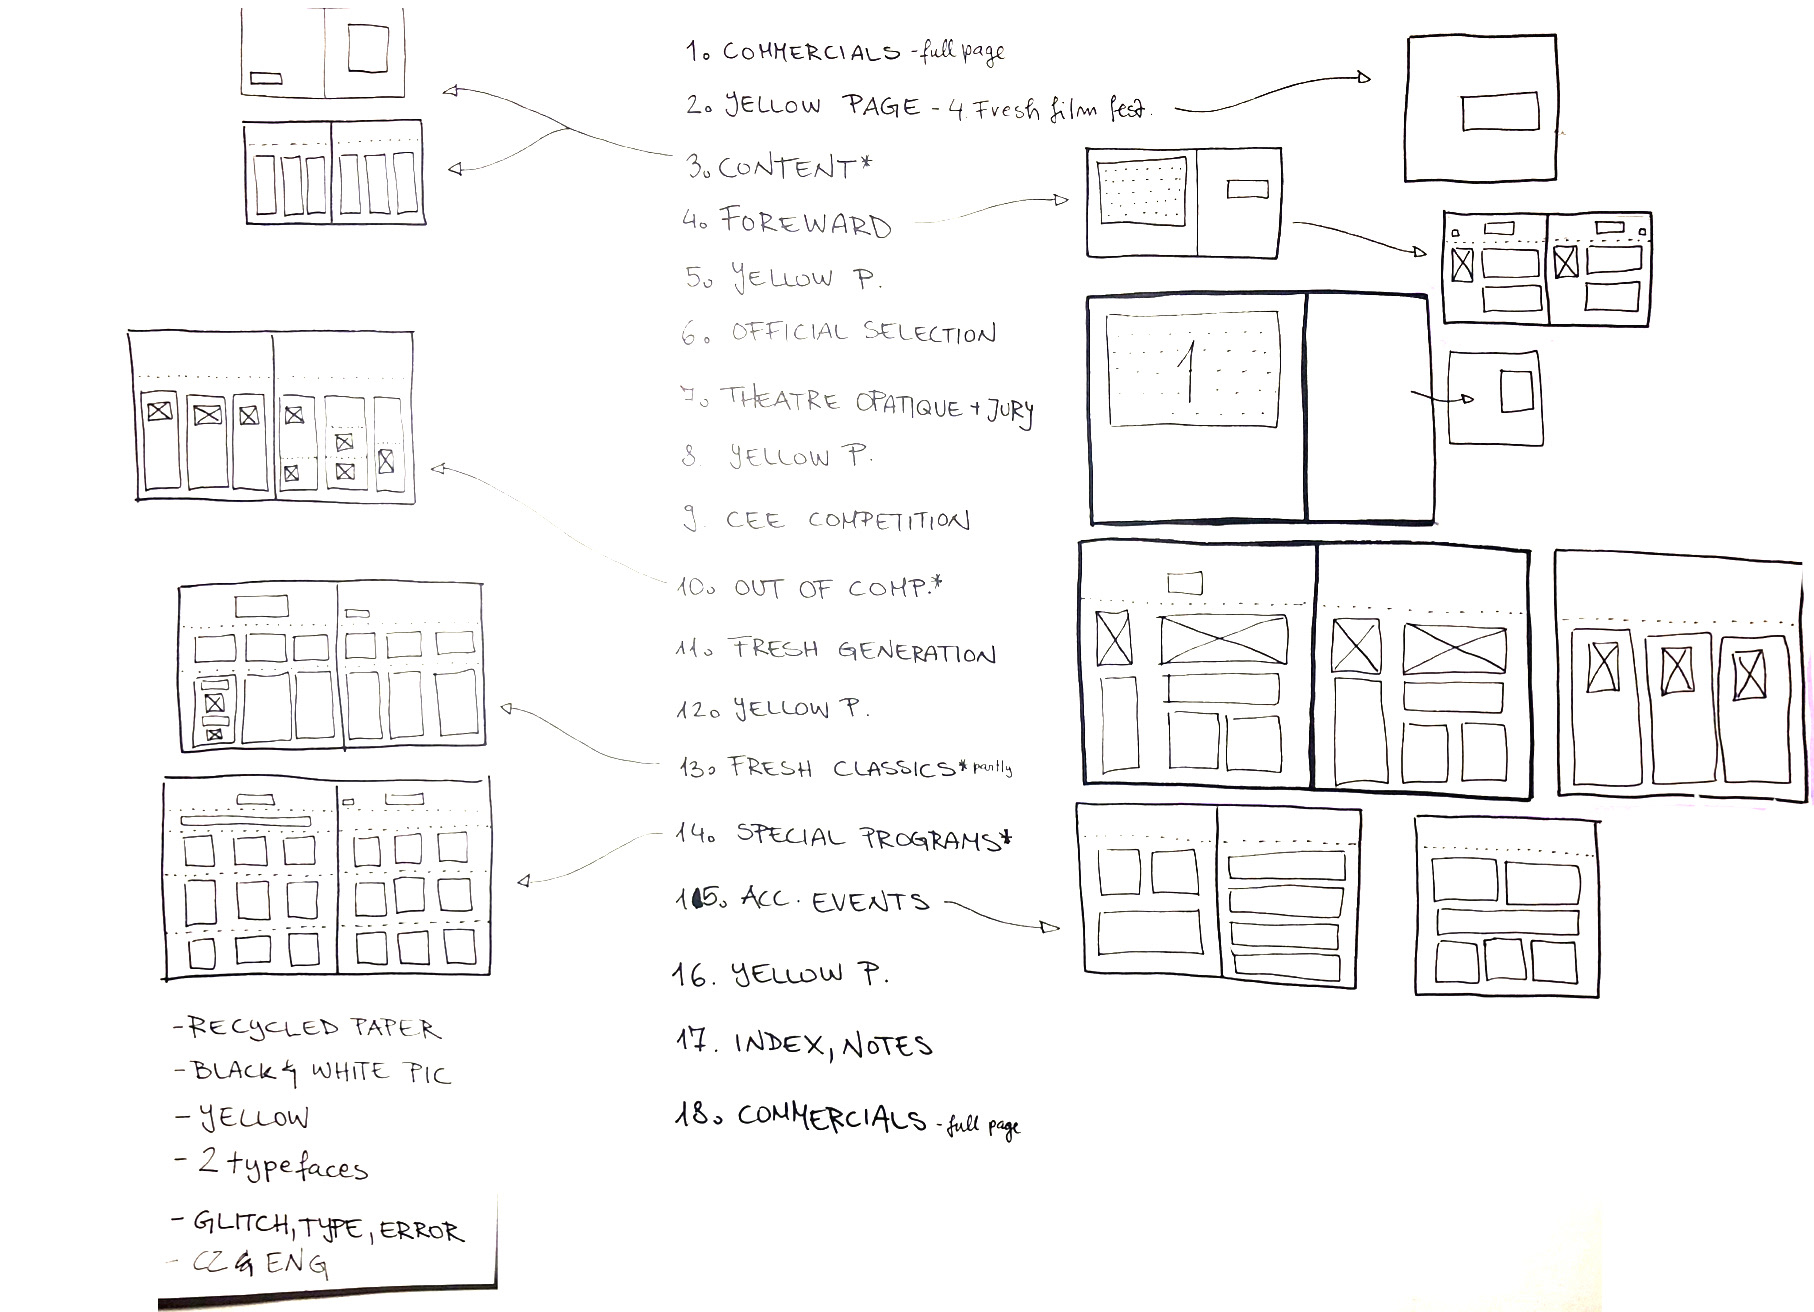 1. COMMERCIALS - full page
2. YELLOW PAGE - 4. Fresh film fest.
3. CONTENT*
4. FOREWARD
5. YELLOW P.
6. OFFICIAL SELECTION
7. THEATRE OPATIQUE + JURY
8. YELLOW P.
9. CEE COMPETITION
10. OUT OF COMP.*
11. FRESH GENERATION
12. YELLOW P.
13. FRESH CLASSICS* partly
14. SPECIAL PROGRAMS*
15. ACC. EVENTS
16. YELLOW P.
17. INDEX, NOTES
18. COMMERCIALS - full page
1
- RECYCLED PAPER
- BLACK & WHITE PIC
- YELLOW
- 2 typefaces
- GLITCH, TYPE, ERROR
- CZ & ENG